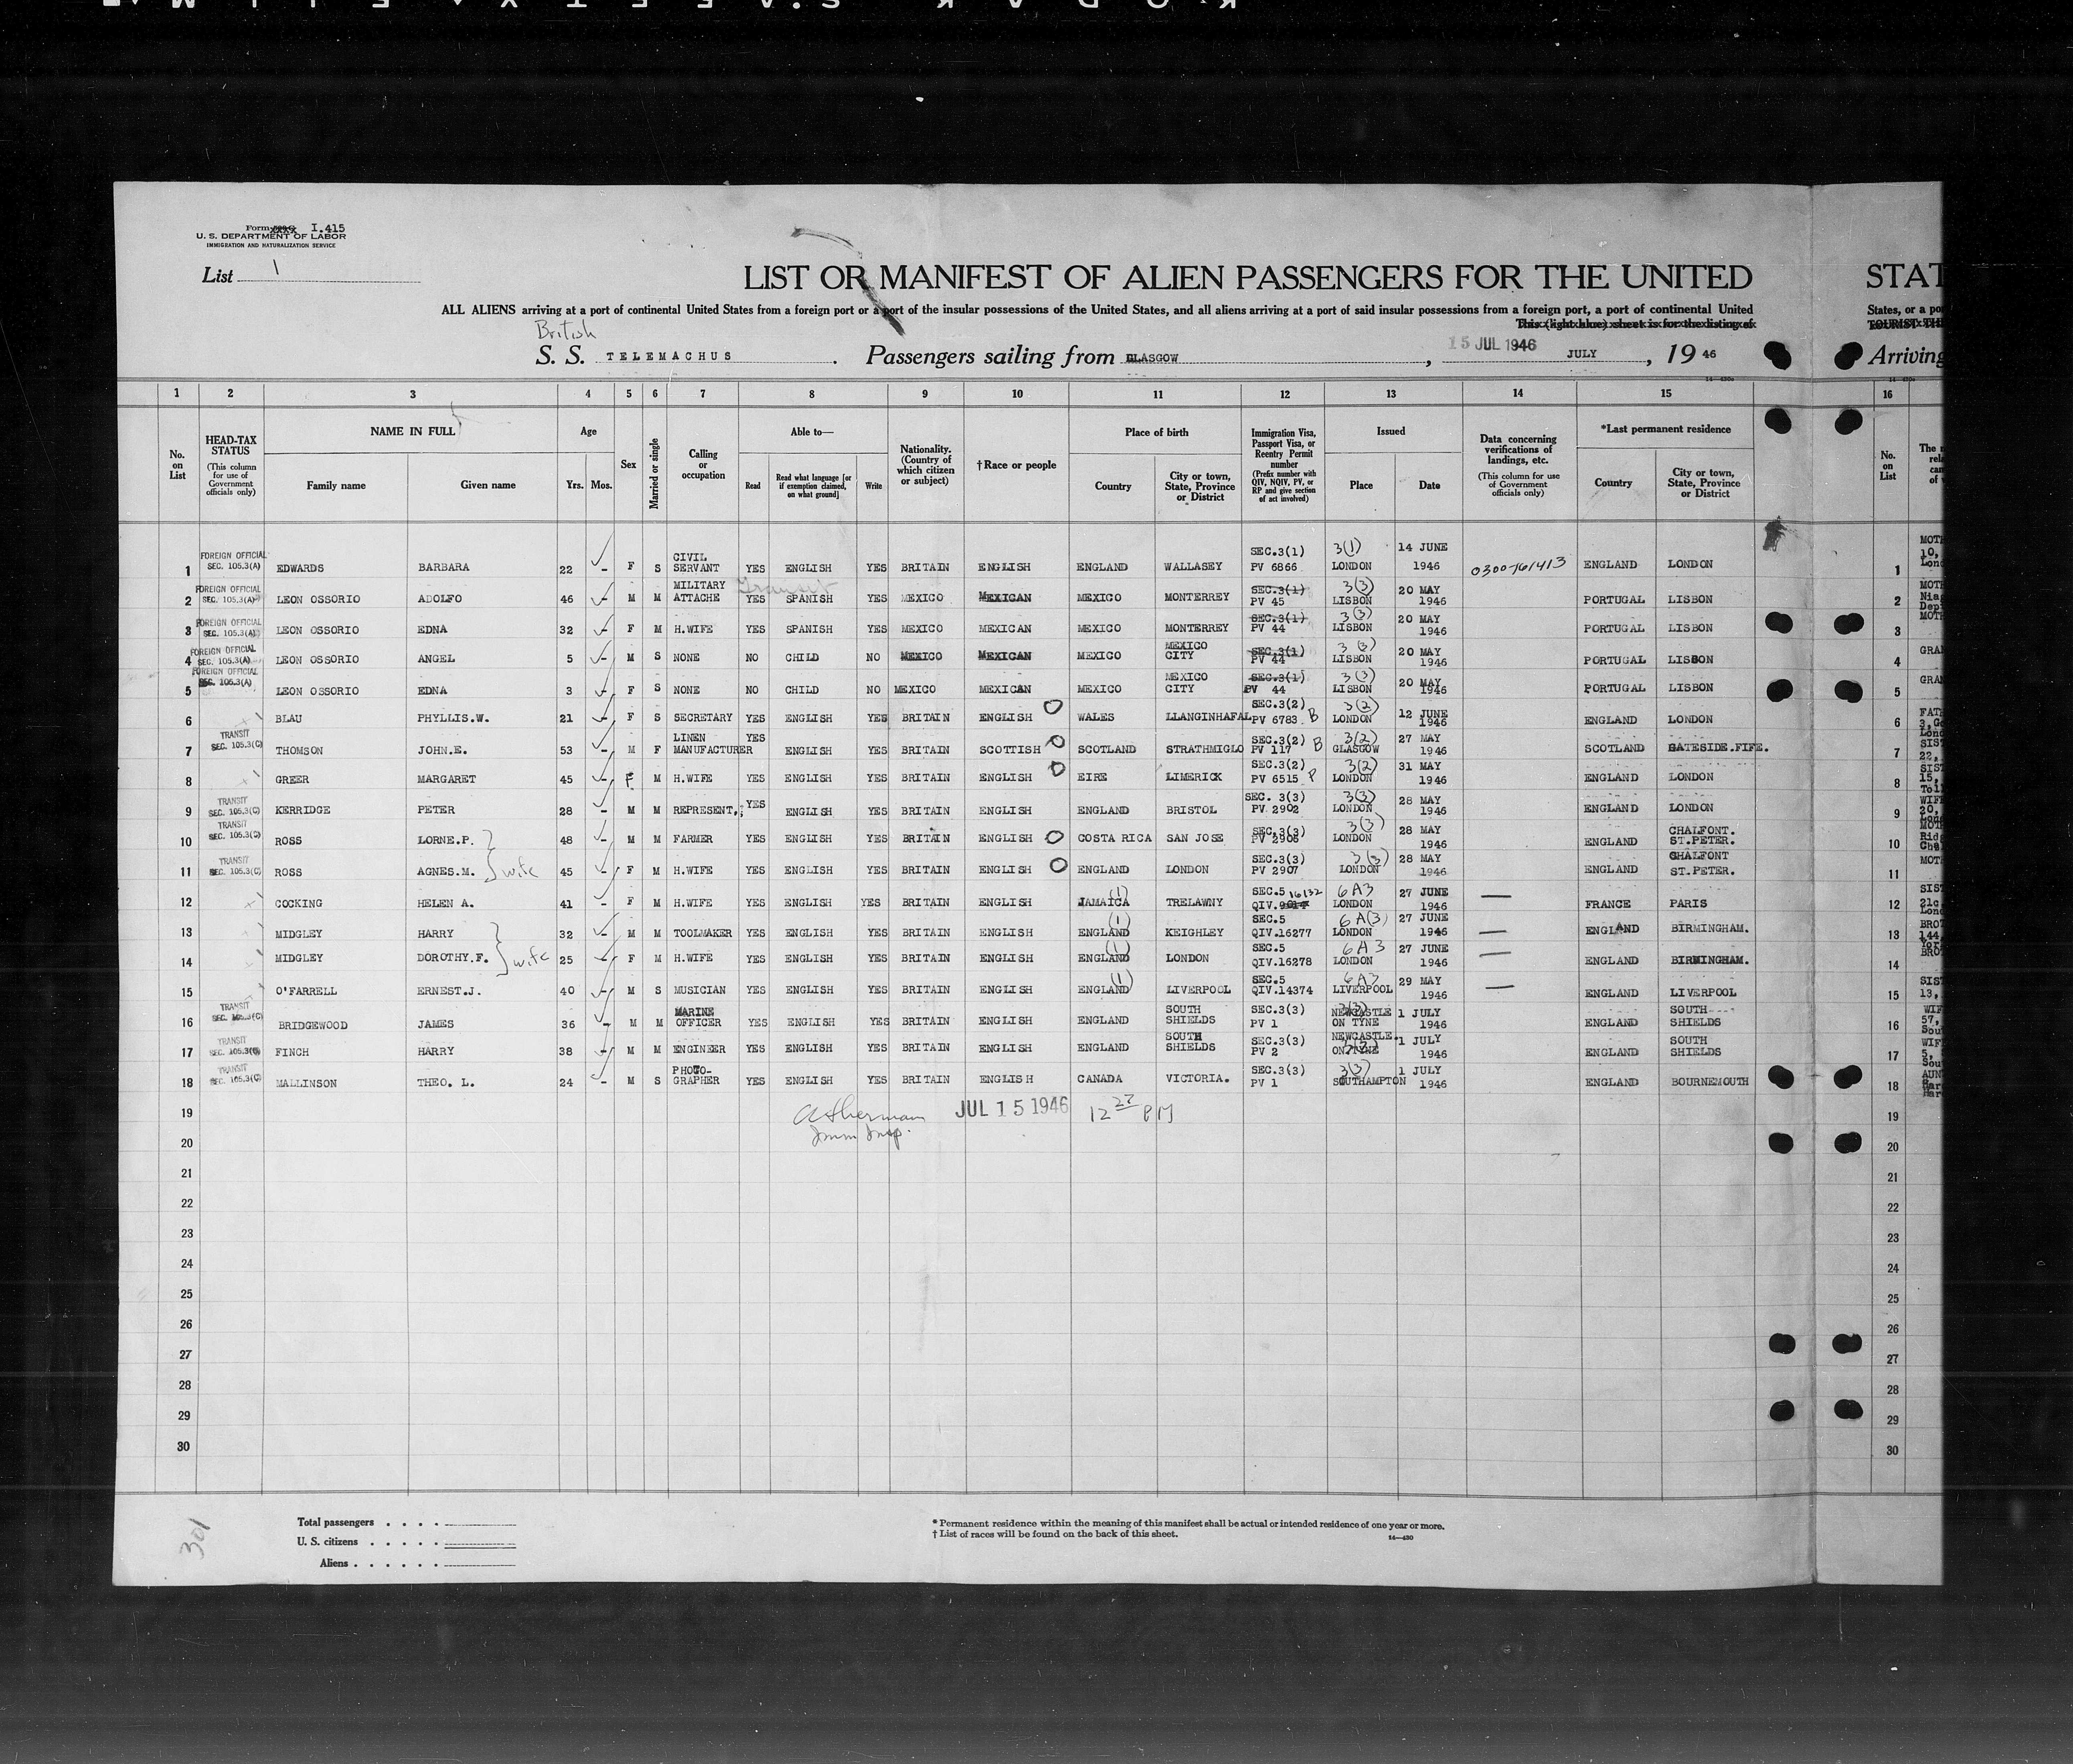 KODAK SAFETY FILM
Form I.415
U. S. DEPARTMENT OF LABOR
IMMIGRATION AND NATURALIZATION SERVICE
List 1
LIST OR MANIFEST OF ALIEN PASSENGERS FOR THE UNITED STAT
ALL ALIENS arriving at a port of continental United States from a foreign port or a port of the insular possessions of the United States, and all aliens arriving at a port of said insular possessions from a foreign port, a port of continental United States, or a por
This (light blue) sheet is for the listing of
British
S. S. TELEMACHUS. Passengers sailing from GLASGOW, 15 JUL 1946 JULY, 19 46 Arriving
1 2 3 4 5 6 7 8 9 10 11 12 13 14 15 16
No. on List
HEAD-TAX STATUS (This column for use of Government officials only)
NAME IN FULL Family name Given name
Age Yrs. Mos.
Sex
Married or single
Calling or occupation
Able to— Read Read what language [or if exemption claimed, on what ground] Write
Nationality. (Country of which citizen or subject)
†Race or people
Place of birth Country City or town, State, Province or District
Immigration Visa, Passport Visa, or Reentry Permit number (Prefix number with QIV, NQIV, PV, or RP and give section of act involved)
Issued Place Date
Data concerning verifications of landings, etc. (This column for use of Government officials only)
*Last permanent residence Country City or town, State, Province or District
No. on List
FOREIGN OFFICIAL SEC. 105.3(A) 1 EDWARDS BARBARA 22 - F S CIVIL SERVANT YES ENGLISH YES BRITAIN ENGLISH ENGLAND WALLASEY SEC.3(1) PV 6866 3(1) LONDON 14 JUNE 1946 0300-761413 ENGLAND LONDON 1
Transit
FOREIGN OFFICIAL SEC. 105.3(A) 2 LEON OSSORIO ADOLFO 46 - M M MILITARY ATTACHE YES SPANISH YES MEXICO MEXICAN MEXICO MONTERREY SEC.3(1) PV 45 3(3) LISBON 20 MAY 1946 PORTUGAL LISBON 2
FOREIGN OFFICIAL SEC. 105.3(A) 3 LEON OSSORIO EDNA 32 - F M H.WIFE YES SPANISH YES MEXICO MEXICAN MEXICO MONTERREY SEC.3(1) PV 44 3(3) LISBON 20 MAY 1946 PORTUGAL LISBON 3
FOREIGN OFFICIAL SEC. 105.3(A) 4 LEON OSSORIO ANGEL 5 - M S NONE NO CHILD NO MEXICO MEXICAN MEXICO MEXICO CITY SEC.3(1) PV 44 3(3) LISBON 20 MAY 1946 PORTUGAL LISBON 4
FOREIGN OFFICIAL SEC. 105.3(A) 5 LEON OSSORIO EDNA 3 - F S NONE NO CHILD NO MEXICO MEXICAN MEXICO MEXICO CITY SEC.3(1) PV 44 3(3) LISBON 20 MAY 1946 PORTUGAL LISBON 5
6 BLAU PHYLLIS.W. 21 - F S SECRETARY YES ENGLISH YES BRITAIN ENGLISH WALES LLANGINHAFAL SEC.3(2) PV 6783 B 3(2) LONDON 12 JUNE 1946 ENGLAND LONDON 6
TRANSIT SEC. 105.3(C) 7 THOMSON JOHN.E. 53 - M F LINEN MANUFACTURER YES ENGLISH YES BRITAIN SCOTTISH SCOTLAND STRATHMIGLO SEC.3(2) PV 117 B 3(2) GLASGOW 27 MAY 1946 SCOTLAND GATESIDE.FIFE. 7
8 GREER MARGARET 45 - F M H.WIFE YES ENGLISH YES BRITAIN ENGLISH EIRE LIMERICK SEC.3(2) PV 6515 P 3(2) LONDON 31 MAY 1946 ENGLAND LONDON 8
TRANSIT SEC. 105.3(C) 9 KERRIDGE PETER 28 - M M REPRESENT. YES ENGLISH YES BRITAIN ENGLISH ENGLAND BRISTOL SEC. 3(3) PV 2902 3(3) LONDON 28 MAY 1946 ENGLAND LONDON 9
TRANSIT SEC. 105.3(C) 10 ROSS LORNE.P. 48 - M M FARMER YES ENGLISH YES BRITAIN ENGLISH COSTA RICA SAN JOSE SEC.3(3) PV 2906 3(3) LONDON 28 MAY 1946 ENGLAND CHALFONT. ST.PETER. 10
TRANSIT SEC. 105.3(C) 11 ROSS AGNES.M. wife 45 - F M H.WIFE YES ENGLISH YES BRITAIN ENGLISH ENGLAND LONDON SEC.3(3) PV 2907 3(3) LONDON 28 MAY 1946 ENGLAND CHALFONT ST.PETER. 11
12 COCKING HELEN A. 41 - F M H.WIFE YES ENGLISH YES BRITAIN ENGLISH JAMAICA (1) TRELAWNY SEC.5 16132 QIV. 6A3 LONDON 27 JUNE 1946 — FRANCE PARIS 12
13 MIDGLEY HARRY 32 - M M TOOLMAKER YES ENGLISH YES BRITAIN ENGLISH ENGLAND (1) KEIGHLEY SEC.5 QIV.16277 6A(3) LONDON 27 JUNE 1946 — ENGLAND BIRMINGHAM. 13
14 MIDGLEY DOROTHY.F. wife 25 - F M H.WIFE YES ENGLISH YES BRITAIN ENGLISH ENGLAND (1) LONDON SEC.5 QIV.16278 6A3 LONDON 27 JUNE 1946 — ENGLAND BIRMINGHAM. 14
15 O'FARRELL ERNEST.J. 40 - M S MUSICIAN YES ENGLISH YES BRITAIN ENGLISH ENGLAND (1) LIVERPOOL SEC.5 QIV.14374 6A3 LIVERPOOL 29 MAY 1946 — ENGLAND LIVERPOOL 15
TRANSIT SEC. 105.3(C) 16 BRIDGEWOOD JAMES 36 - M M MARINE OFFICER YES ENGLISH YES BRITAIN ENGLISH ENGLAND SOUTH SHIELDS SEC.3(3) PV 1 3(3) NEWCASTLE ON TYNE 1 JULY 1946 ENGLAND SOUTH SHIELDS 16
TRANSIT SEC. 105.3(C) 17 FINCH HARRY 38 - M M ENGINEER YES ENGLISH YES BRITAIN ENGLISH ENGLAND SOUTH SHIELDS SEC.3(3) PV 2 3(3) NEWCASTLE. ON.TYNE 1 JULY 1946 ENGLAND SOUTH SHIELDS 17
TRANSIT SEC. 105.3(C) 18 MALLINSON THEO. L. 24 - M S PHOTO-GRAPHER YES ENGLISH YES BRITAIN ENGLISH CANADA VICTORIA. SEC.3(3) PV 1 3(3) SOUTHAMPTON 1 JULY 1946 ENGLAND BOURNEMOUTH 18
19 JUL 15 1946 12 27 PM 19
Imm Insp.
20 20
21 21
22 22
23 23
24 24
25 25
26 26
27 27
28 28
29 29
30 30
301
Total passengers . . . .
U. S. citizens . . . . .
Aliens . . . . . .
* Permanent residence within the meaning of this manifest shall be actual or intended residence of one year or more.
† List of races will be found on the back of this sheet.
14—430